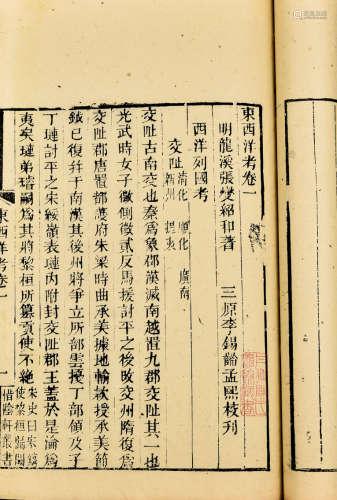 東西洋考卷一
明龍溪張燮紹和著 三原李錫齡孟熙校刊
西洋列國考
交阯 清化 順化 廣南 新州 提夷
交阯古南交也秦為象郡漢滅南越置九郡交阯其一也
光武時女子徵側徵貳反馬援討平之後改交州隋復為
交阯郡唐置都護府朱梁時曲承美據地輸款授承美節
鉞已復并于南漢其後州將爭立所部雲擾丁部領及子
丁璉討平之宋綏嶺表璉內附封交阯郡王蓋於是淪為
夷矣璉弟璿嗣為其將黎桓所篡貢使不絕 朱史曰宋鎬使黎桓歸聞
東西洋考卷一 一 惜陰軒叢書